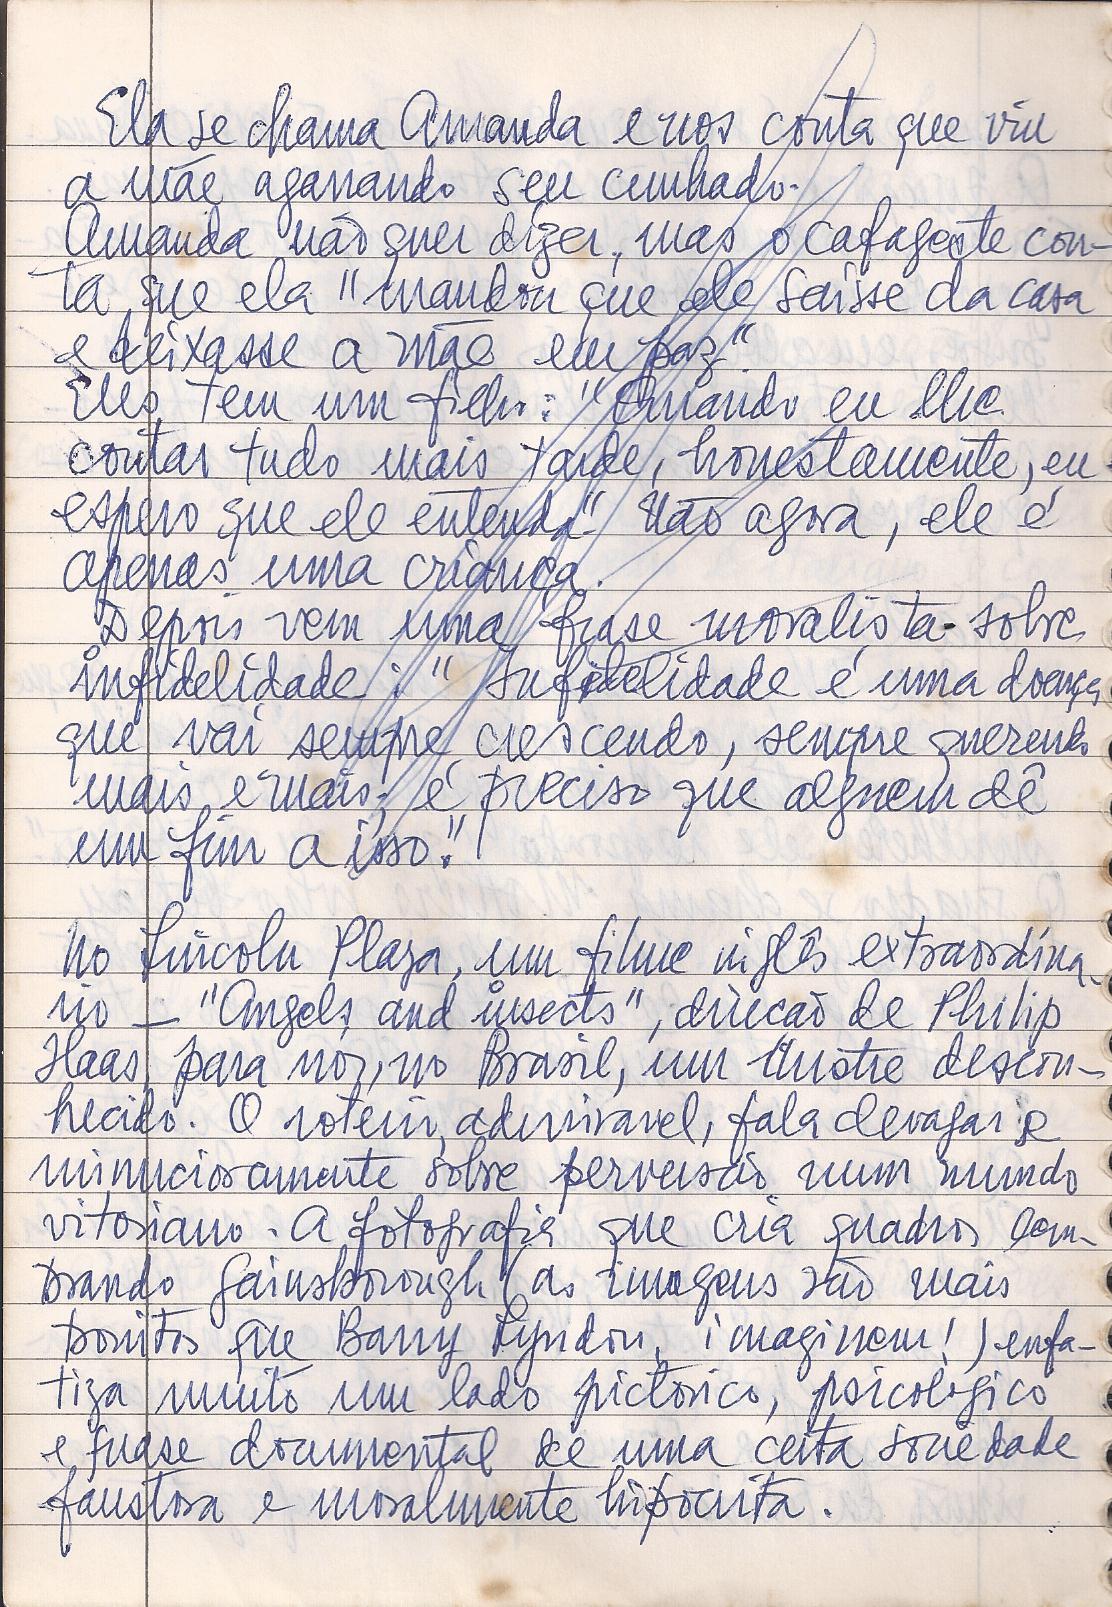 Ela se chama Amanda e nos conta que viu
a mãe agarrando seu cunhado.
Amanda não quer dizer, mas o cafageste con-
ta que ela "mandou que ele saisse da casa
e deixasse a mãe em paz"
Eles tem um filho: "Quando eu lhe
contar tudo mais tarde, honestamente, eu
espero que ele entenda". Não agora, ele é
apenas uma criança.
Depois vem uma frase moralista sobre
infidelidade: "Infidelidade é uma doença
que vai sempre crescendo, sempre querendo
mais e mais; é preciso que alguem dê
um fim a isso."
No Lincoln Plaza, um filme inglês extraordiná-
rio — "Angels and insects", direcão de Philip
Haas, para nós, no Brasil, um ilustre descon-
hecido. O roteiro, admiravel, fala devagar e
minuciosamente sobre perversão num mundo
vitoriano. A fotografia que cria quadros lem-
brando Gainsborough (as imagens são mais
bonitos que Barry Lyndon, imaginem!) enfa-
tiza muito um lado pictorico, psicologico
e quase documental de uma certa sociedade
faustosa e moralmente hipocrita.